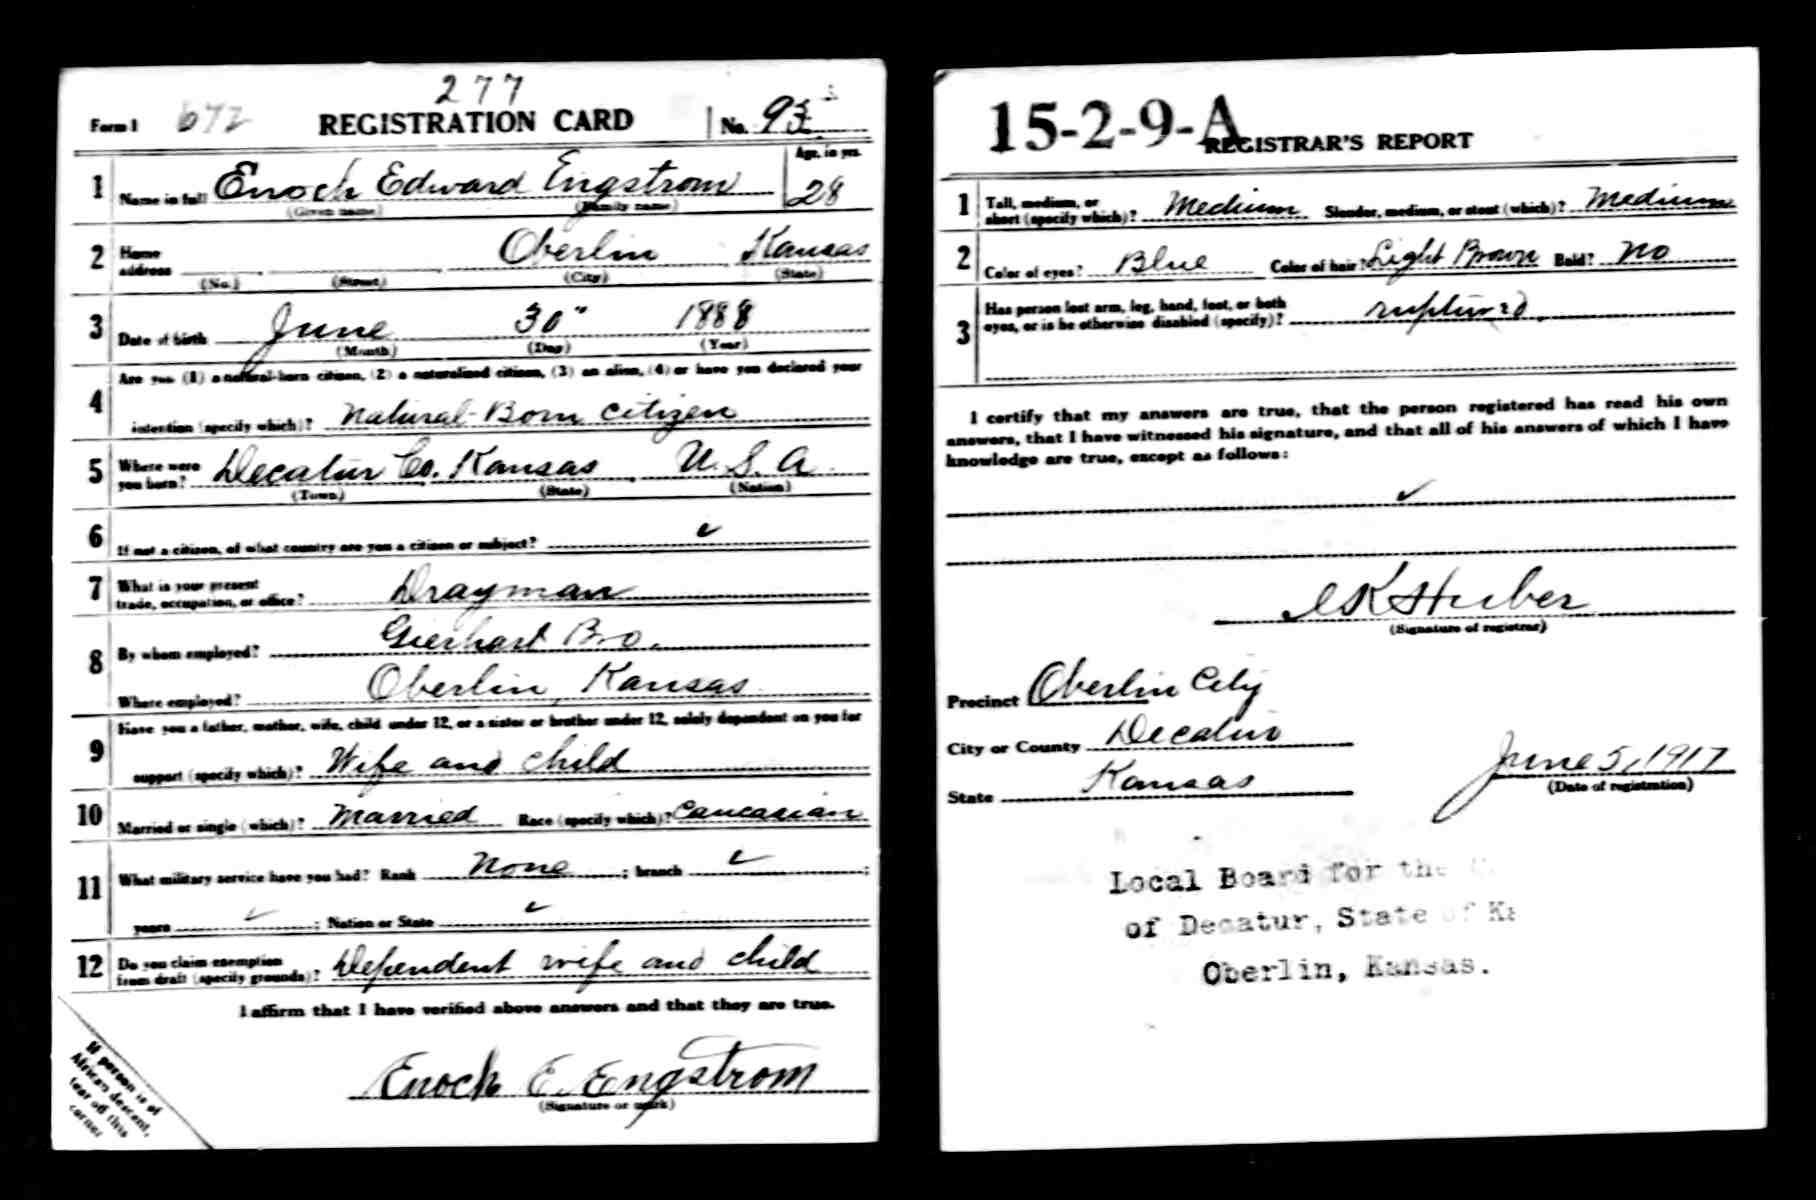 277
Form 1 672 REGISTRATION CARD No. 93
1 Name in full Enoch Edward Engstrom Age, in yrs. 28
(Given name) (Family name)
2 Home address Oberlin Kansas
(No.) (Street) (City) (State)
3 Date of birth June 30" 1888
(Month) (Day) (Year)
4 Are you (1) a natural-born citizen, (2) a naturalized citizen, (3) an alien, (4) or have you declared your
intention (specify which)? Natural-Born citizen
5 Where were you born? Decatur Co. Kansas U.S.A.
(Town) (State) (Nation)
6 If not a citizen, of what country are you a citizen or subject? ✓
7 What is your present trade, occupation, or office? Drayman
8 By whom employed? Gierhart Bro.
Where employed? Oberlin, Kansas
9 Have you a father, mother, wife, child under 12, or a sister or brother under 12, solely dependent on you for
support (specify which)? Wife and child
10 Married or single (which)? Married Race (specify which)? Caucasian
11 What military service have you had? Rank None ; branch ✓ ;
years ✓ ; Nation or State ✓
12 Do you claim exemption from draft (specify grounds)? Dependent wife and child
I affirm that I have verified above answers and that they are true.
Enoch E. Engstrom
(Signature or mark)
If person is of
African descent,
tear off this
corner
15-2-9-A
REGISTRAR'S REPORT
1 Tall, medium, or short (specify which)? Medium Slender, medium, or stout (which)? Medium
2 Color of eyes? Blue Color of hair? Light Brown Bald? No
3 Has person lost arm, leg, hand, foot, or both
eyes, or is he otherwise disabled (specify)? ruptured.
I certify that my answers are true, that the person registered has read his own
answers, that I have witnessed his signature, and that all of his answers of which I have
knowledge are true, except as follows:
✓
Huber
(Signature of registrar)
Precinct Oberlin City
City or County Decatur
State Kansas
June 5, 1917
(Date of registration)
Local Board for the
of Decatur, State of Ka
Oberlin, Kansas.